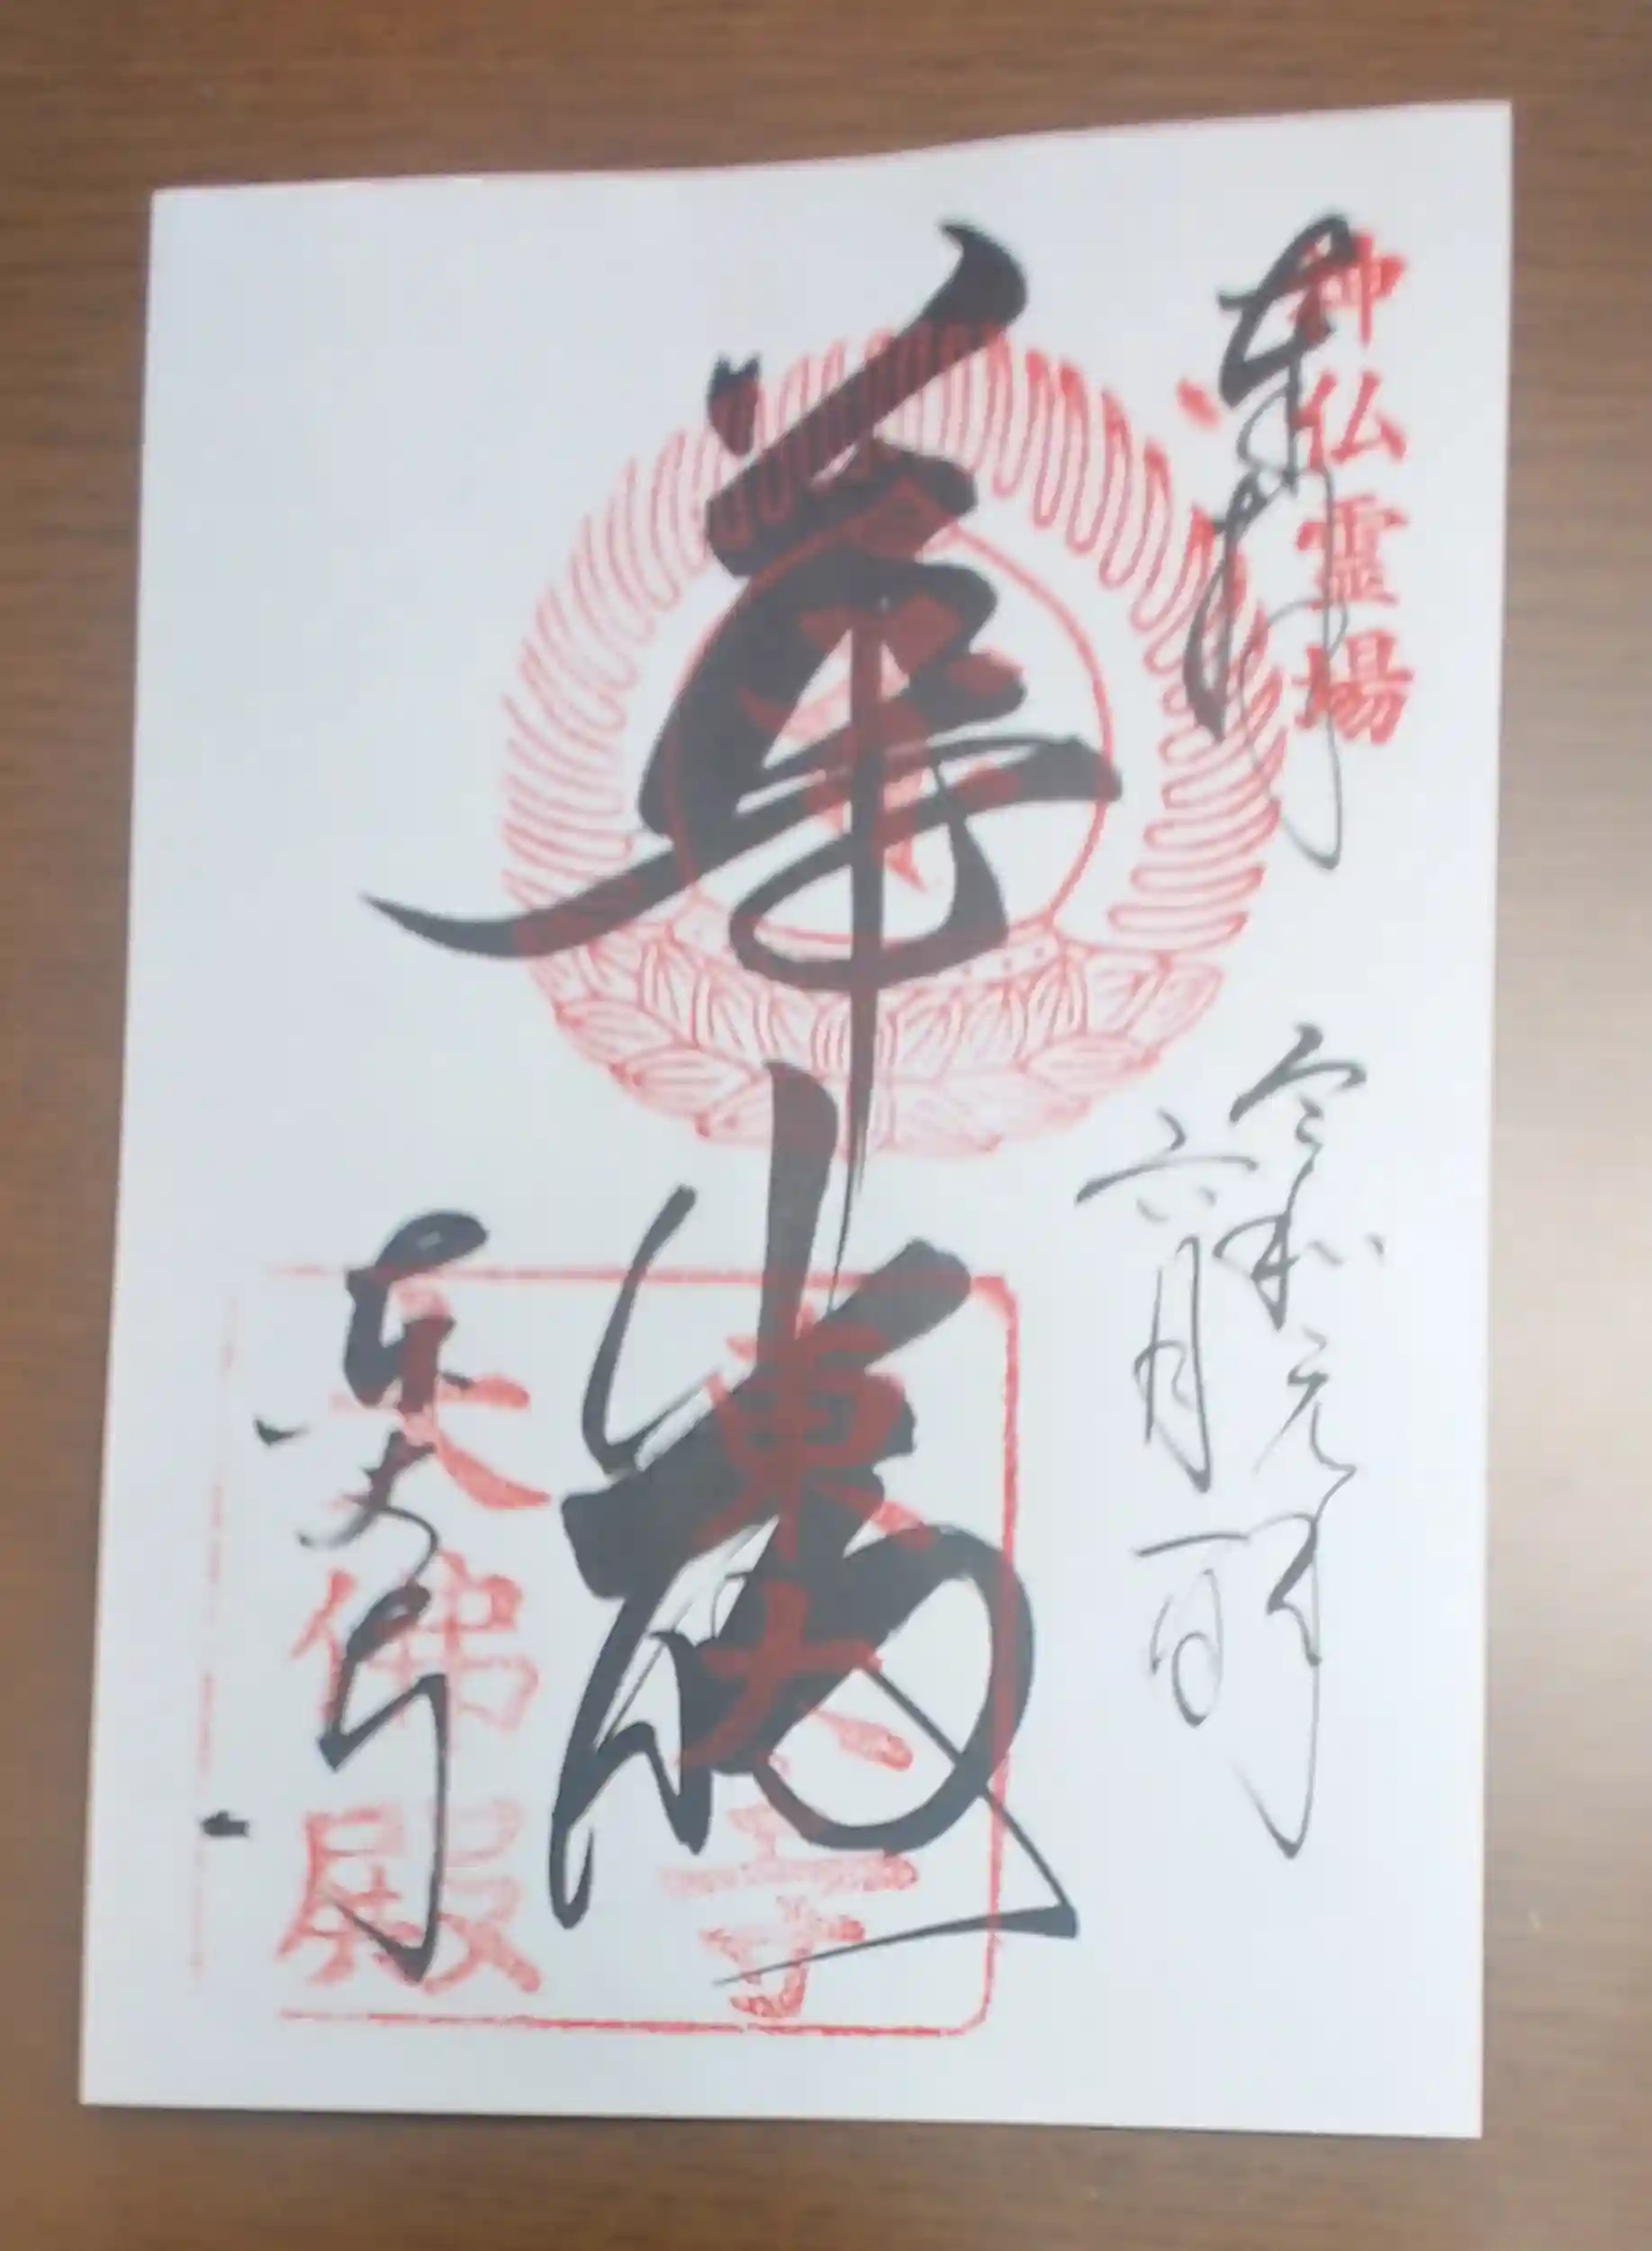 奉拝
神仏霊場
令和元年
六月一日
華厳
東大寺
大佛殿
東大寺